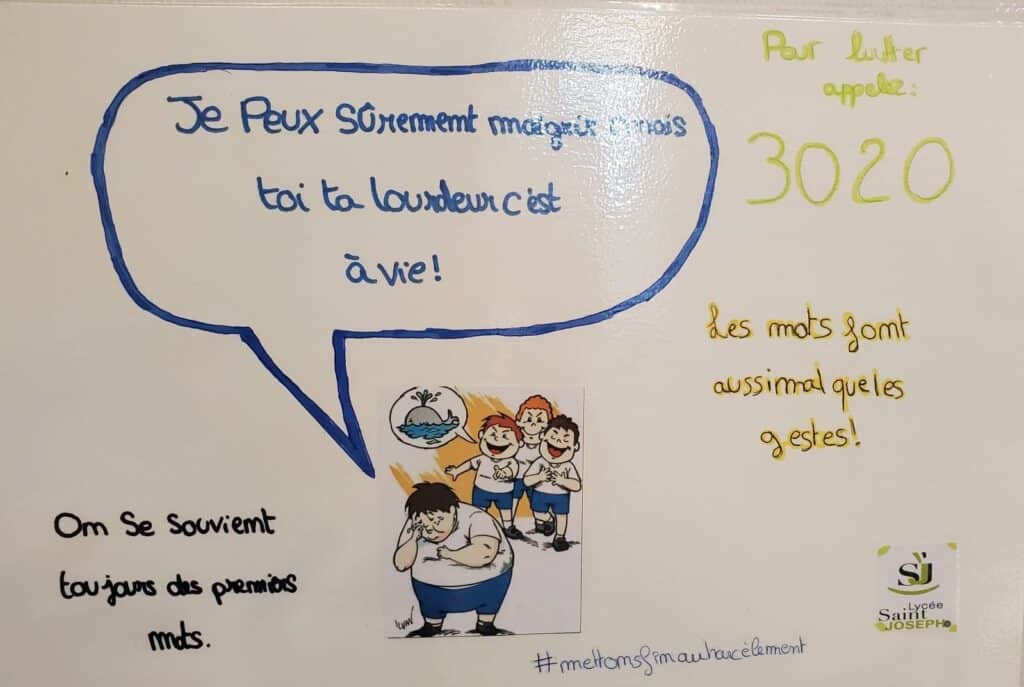 Je Peux Sûrement maigrir mais
toi ta lourdeur c'est
à vie!
Pour lutter
appelez:
3020
Les mots font
aussi mal que les
gestes!
On Se Souvient
toujours des premiers
mots.
#mettonsfinauharcèlement
SJ
Lycée
Saint
JOSEPH